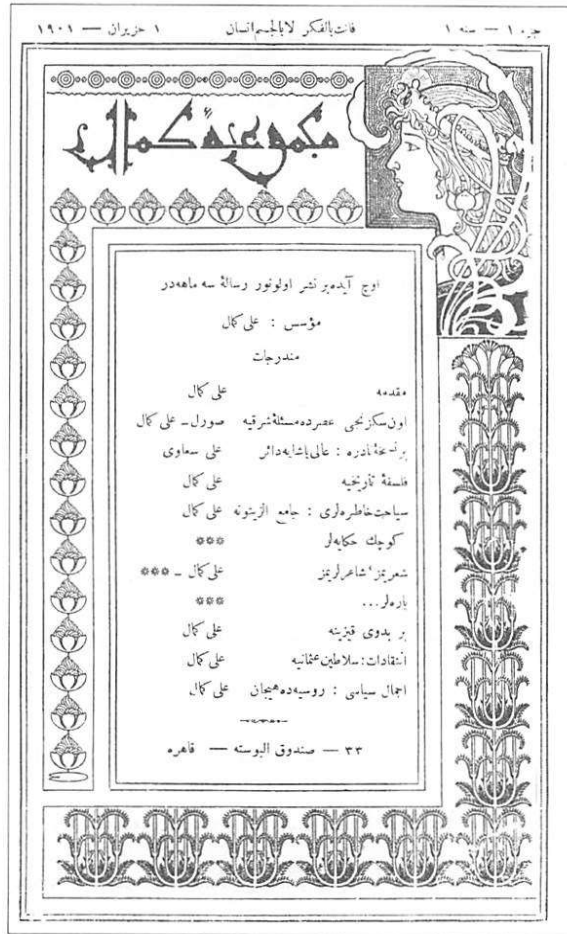 جزء ١ — سنه ١ فانت بالفكر لا بالجسم انسان ١ حزيران — ١٩٠١
مجموعهٔ كمال
اوچ آیده بر نشر اولونور رسالهٔ سه ماهه‌در
مؤسس : على كمال
مندرجات
مقدمه على كمال
اون سكزنجى عصرده مسئلهٔ شرقيه صورل ــ على كمال
بر نسخهٔ نادره : عالى پاشايه دائر على سعاوى
فلسفهٔ تاريخيه على كمال
سياحت خاطره‌لرى : جامع الزيتونه على كمال
كوچك حكايه‌لر ***
شعريمز ، شاعرلريمز على كمال ــ ***
پاره‌لر...  ***
بر بدوى قيزينه على كمال
انتقادات : سلاطين عثمانيه على كمال
اجمال سياسى : روسيه‌ده هيجان على كمال
٣٣ — صندوق البوسته — قاهره